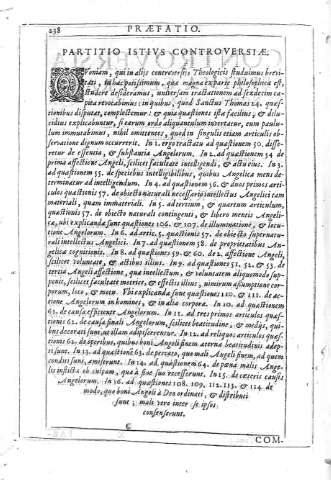 238 PRÆFATIO.
PARTITIO ISTIVS CONTROVERSIÆ.
QVoniam, qui in alijs controuersijs Theologicis studuimus breui-
tati, in hac potissimum, quæ magna ex parte philosophica est,
studere desideramus, vniuersam tractationem ad sexdecim ca-
pita reuocabimus: in quibus, quod Sanctus Thomas 24. quæ-
stionibus disputat, complectemur: & quia quæstiones istæ facilius, & dilu-
cidius explicabuntur, si earum ordo aliquantulum inuertatur, eum paulu-
lum immutabimus, nihil omittentes, quod in singulis etiam articulis ob-
seruatione dignum occurrerit. In 1. ergo tractatu ad quæstionem 50. disse-
retur de essentia, & substantia Angelorum. In 2. ad quæstionem 54. de
prima affectione Angeli, scilicet facultate intelligendi, & actu eius. In 3.
ad quæstionem 55. de speciebus intelligibilibus, quibus Angelica mens de-
terminatur ad intelligendum. In 4. ad quæstionem 56. & duos primos arti-
culos quæstionis 57. de obiecto naturali necessario intellectus Angelici tam
materiali, quam immateriali. In 5. ad tertium, & quartum articulum,
quæstionis 57. de obiecto naturali contingenti, & libero mentis Angeli-
cæ, vbi explicanda sunt quæstiones 106. & 107. de illuminatione, & locu-
tione Angelorum. In 6. ad artic. 5. quæstionis 57. de obiecto supernatu-
rali intellectus Angelici. In 7. ad quæstionem 58. de proprietatibus An-
gelicæ cognitionis. In 8. ad quæstiones 59. & 60. de 2. affectione Angeli,
scilicet voluntate, & actibus illius. In 9. ad quæstiones 51. 52. & 53. de
tertia Angeli affectione, quæ intellectum, & voluntatem aliquomodo sup-
ponit, scilicet facultate motrice, & effectis illius, nimirum assumptione cor-
porum, loco, & motu. Vbi explicandæ sunt quæstiones 110. & 111. de ac-
tione Angelorum in homines, & in alia corpora. In 10. ad quæstionem
61. de causa efficiente Angelorum. In 11. ad tres primos articulos quæst-
ionis 62. de causa finali Angelorum, scilicet beatitudine, & medijs, qui-
bus decebant sunt, vt illam adipiscerentur. In 12. ad reliquos articulos quæsti-
onis 62. de operibus, quibus boni Angeli finem æternæ beatitudinis adep-
ti sunt. In 13. ad quæstionem 63. de peccato, quo mali Angeli finem, ad quem
conditi sunt, amiserunt. In 14. ad quæstionem 64. de pœna malis Ange-
lis inflicta ob culpam, qua à fine suo recesserunt. In 15. de cæteris causis
Angelorum. In 16. ad quæstiones 108. 109. 112. 113. & 114. de
modo, quo boni Angeli à Deo ordinati, & quo mali
sunt; male vero inter se ipsos
consenserunt.
COM-